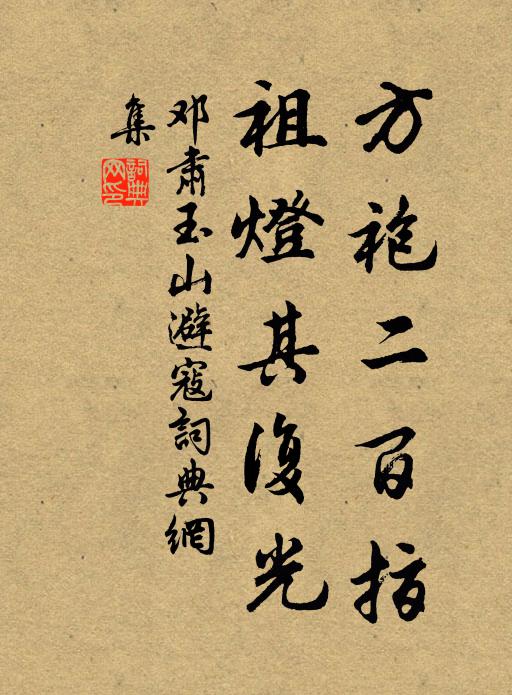 方袍二百指
祖燈其復光
邓肅玉山避寇詞典網
集
詞典網印